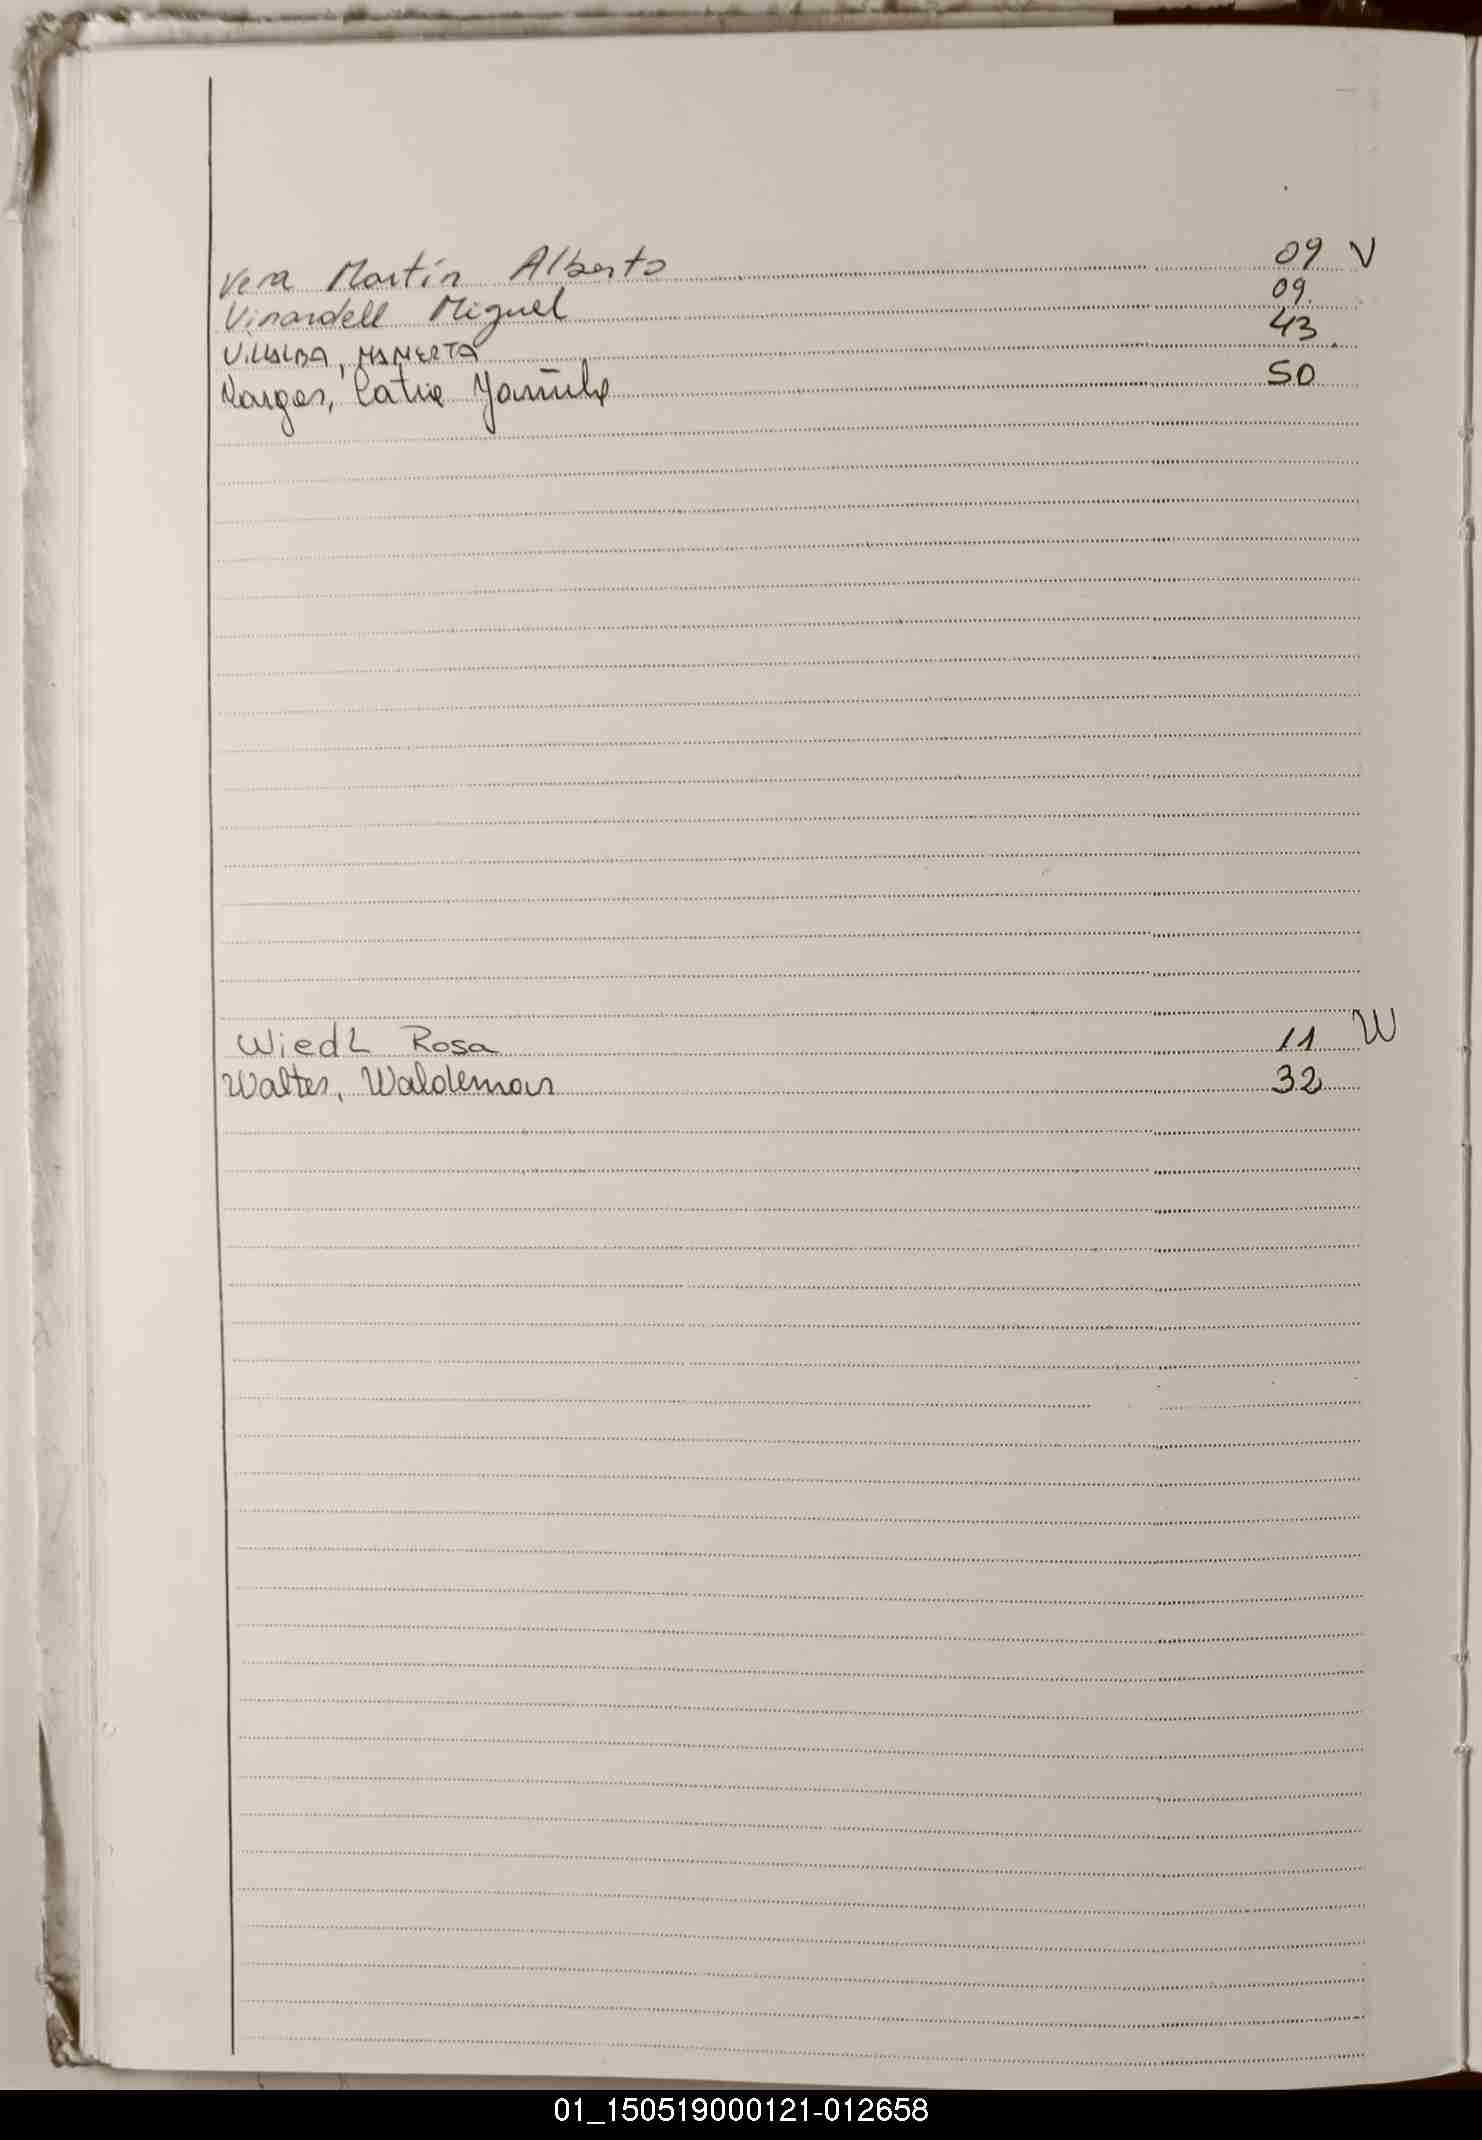 Vera Martín Alberto 09 V
Vinardell Miguel 09
VILLALBA, MAMERTA 43
Vargas, Catia Yamila 50
Wiedl Rosa 11 W
Walter, Waldemar 32
01_150519000121-012658